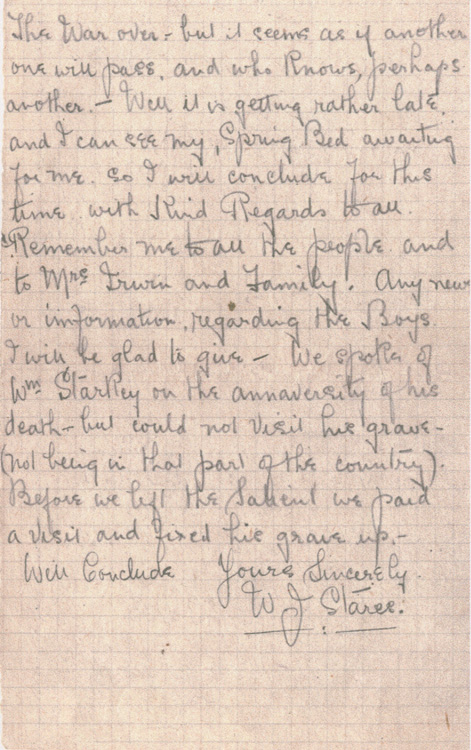 The War over - but it seems as if another
one will pass, and who Knows, perhaps
another. - Well it is getting rather late,
and I can see my, Spring Bed awaiting
for me. so I will conclude for this
time. with Kind Regards to all.
Remember me to all the people and
to Mrs Irwin and Family. Any news
or information, regarding the Boys
I will be glad to give - We spoke of
Wm Startley on the annaversity of his
death - but could not visit his grave -
(not being in that part of the country).
Before we left the Salient we paid
a visit and fixed his grave up. -
Well Conclude Yours Sincerely.
W J